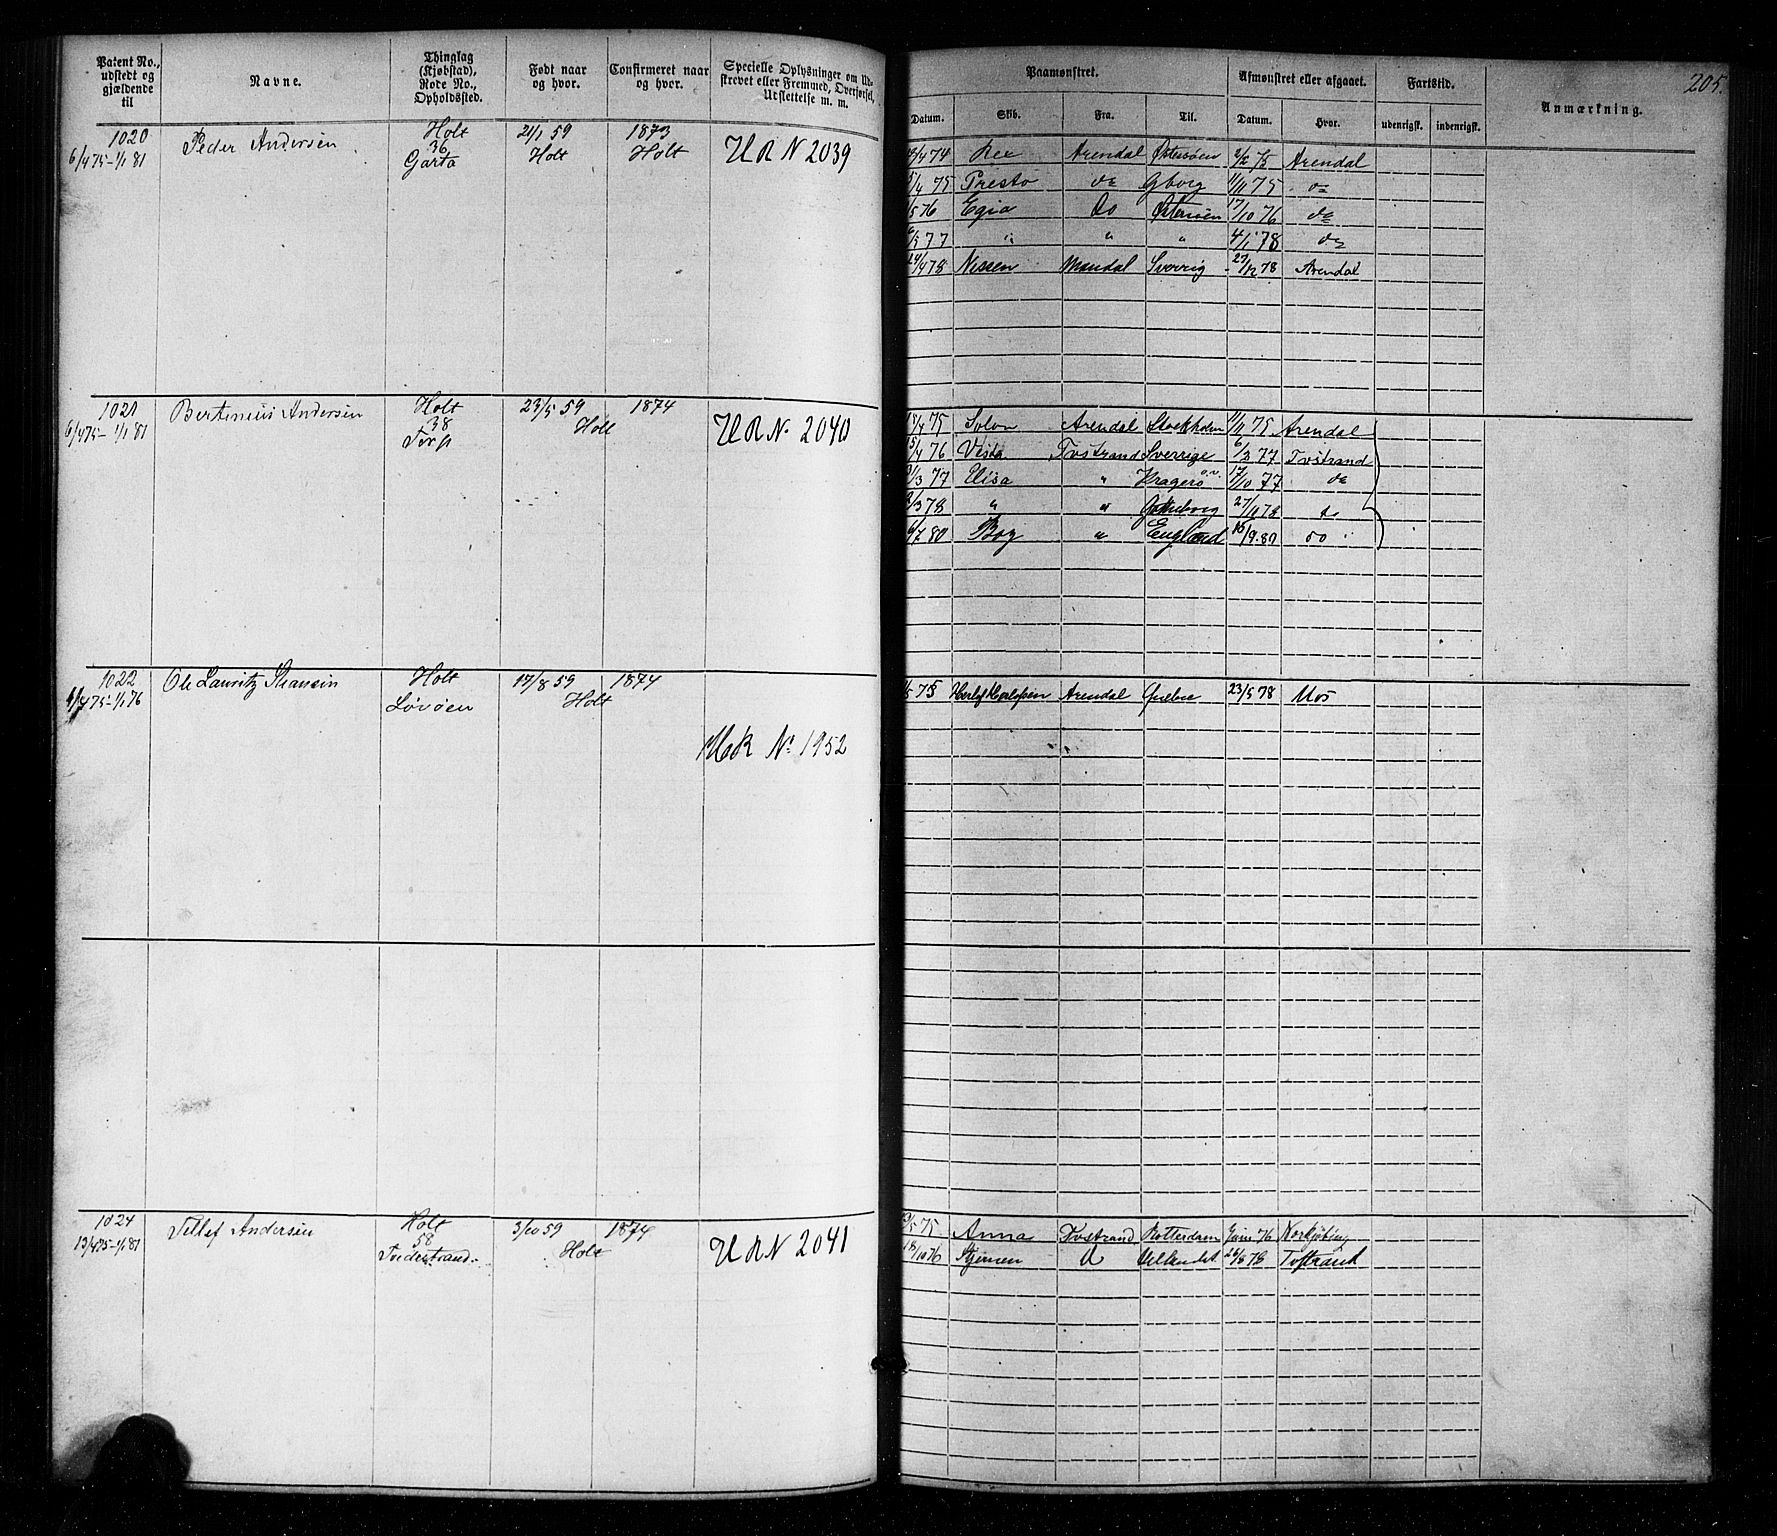 205.
Patent No., udstedt og gjældende til
Navne.
Thinglag (Kjøbstad), Rode No., Opholdssted.
Født naar og hvor.
Confirmeret naar og hvor.
Specielle Oplysninger om Udstrevet eller Fremmed, Overførsel, Udslettelse m. m.
Paamønstret.
Datum. Skib. Fra. Til.
Afmønstret eller afgaaet.
Datum. Hvor.
Fartstid.
udenrigsk. indenrigsk.
Anmærkning.
1020 Peder Andersen Holt 21/1 59 1873
6/4 75-1/1 81 36 Holt Holt
Garta
URN 2039
74 Rex Arendal Østersøen Arendal
75 Presto do Gborg 1/11 75 do
76 Egia Do Østersøen 17/10 76 do
77 " " " 4/1 78 do
24/4 78 Nissen Mandal Sverrig 27/12 78 Arendal
1021 Bertinius Andersen Holt 23/5 59 1874
6/4 75-1/1 81 38 Holt
Torp
URN. 2040
75 Solon Arendal Stockholm 1/11 75 Arendal
15/4 76 Vesta Tvstrand Sverrige 6/2 77 Tvstrand
77 Elisa " Kragerø o.v. 17/10 77 do
78 " " Gøteborg 27/11 78 do
80 Boy " England 16/9 80 do
1022 Ole Lauritz Hansen Holt 17/8 59 1874
75-1/1 76 Løvøen Holt
UR No 1952
75 Herlof Herlofsen Arendal Quebec 23/5 78 Mos
1024 Tellef Andersen Holt 3/10 59 1874
13/4 75-1/1 81 58 Holt
Tvedestrand.
URN 2041
75 Anna Tvstrand Rotterdam Juni 76 Norkjøbing
18/10 76 Stjernen Udlandet Tvstrand